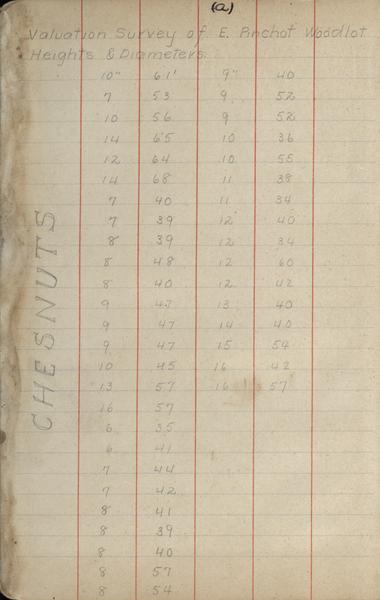 (a)
Valuation Survey of E. Pinchot Woodlot
Heights & Diameters.
CHESNUTS
10" 61' 9" 40
7 53 9 52
10 56 9 52
14 65 10 36
12 64 10 55
14 68 11 38
7 40 11 34
7 39 12 40
8 39 12 34
8 48 12 60
8 40 12 42
9 47 13 40
9 47 14 40
9 47 15 54
10 45 16 42
13 57 16 57
16 57
6 35
6 41
7 44
7 42
8 41
8 39
8 40
8 57
8 54